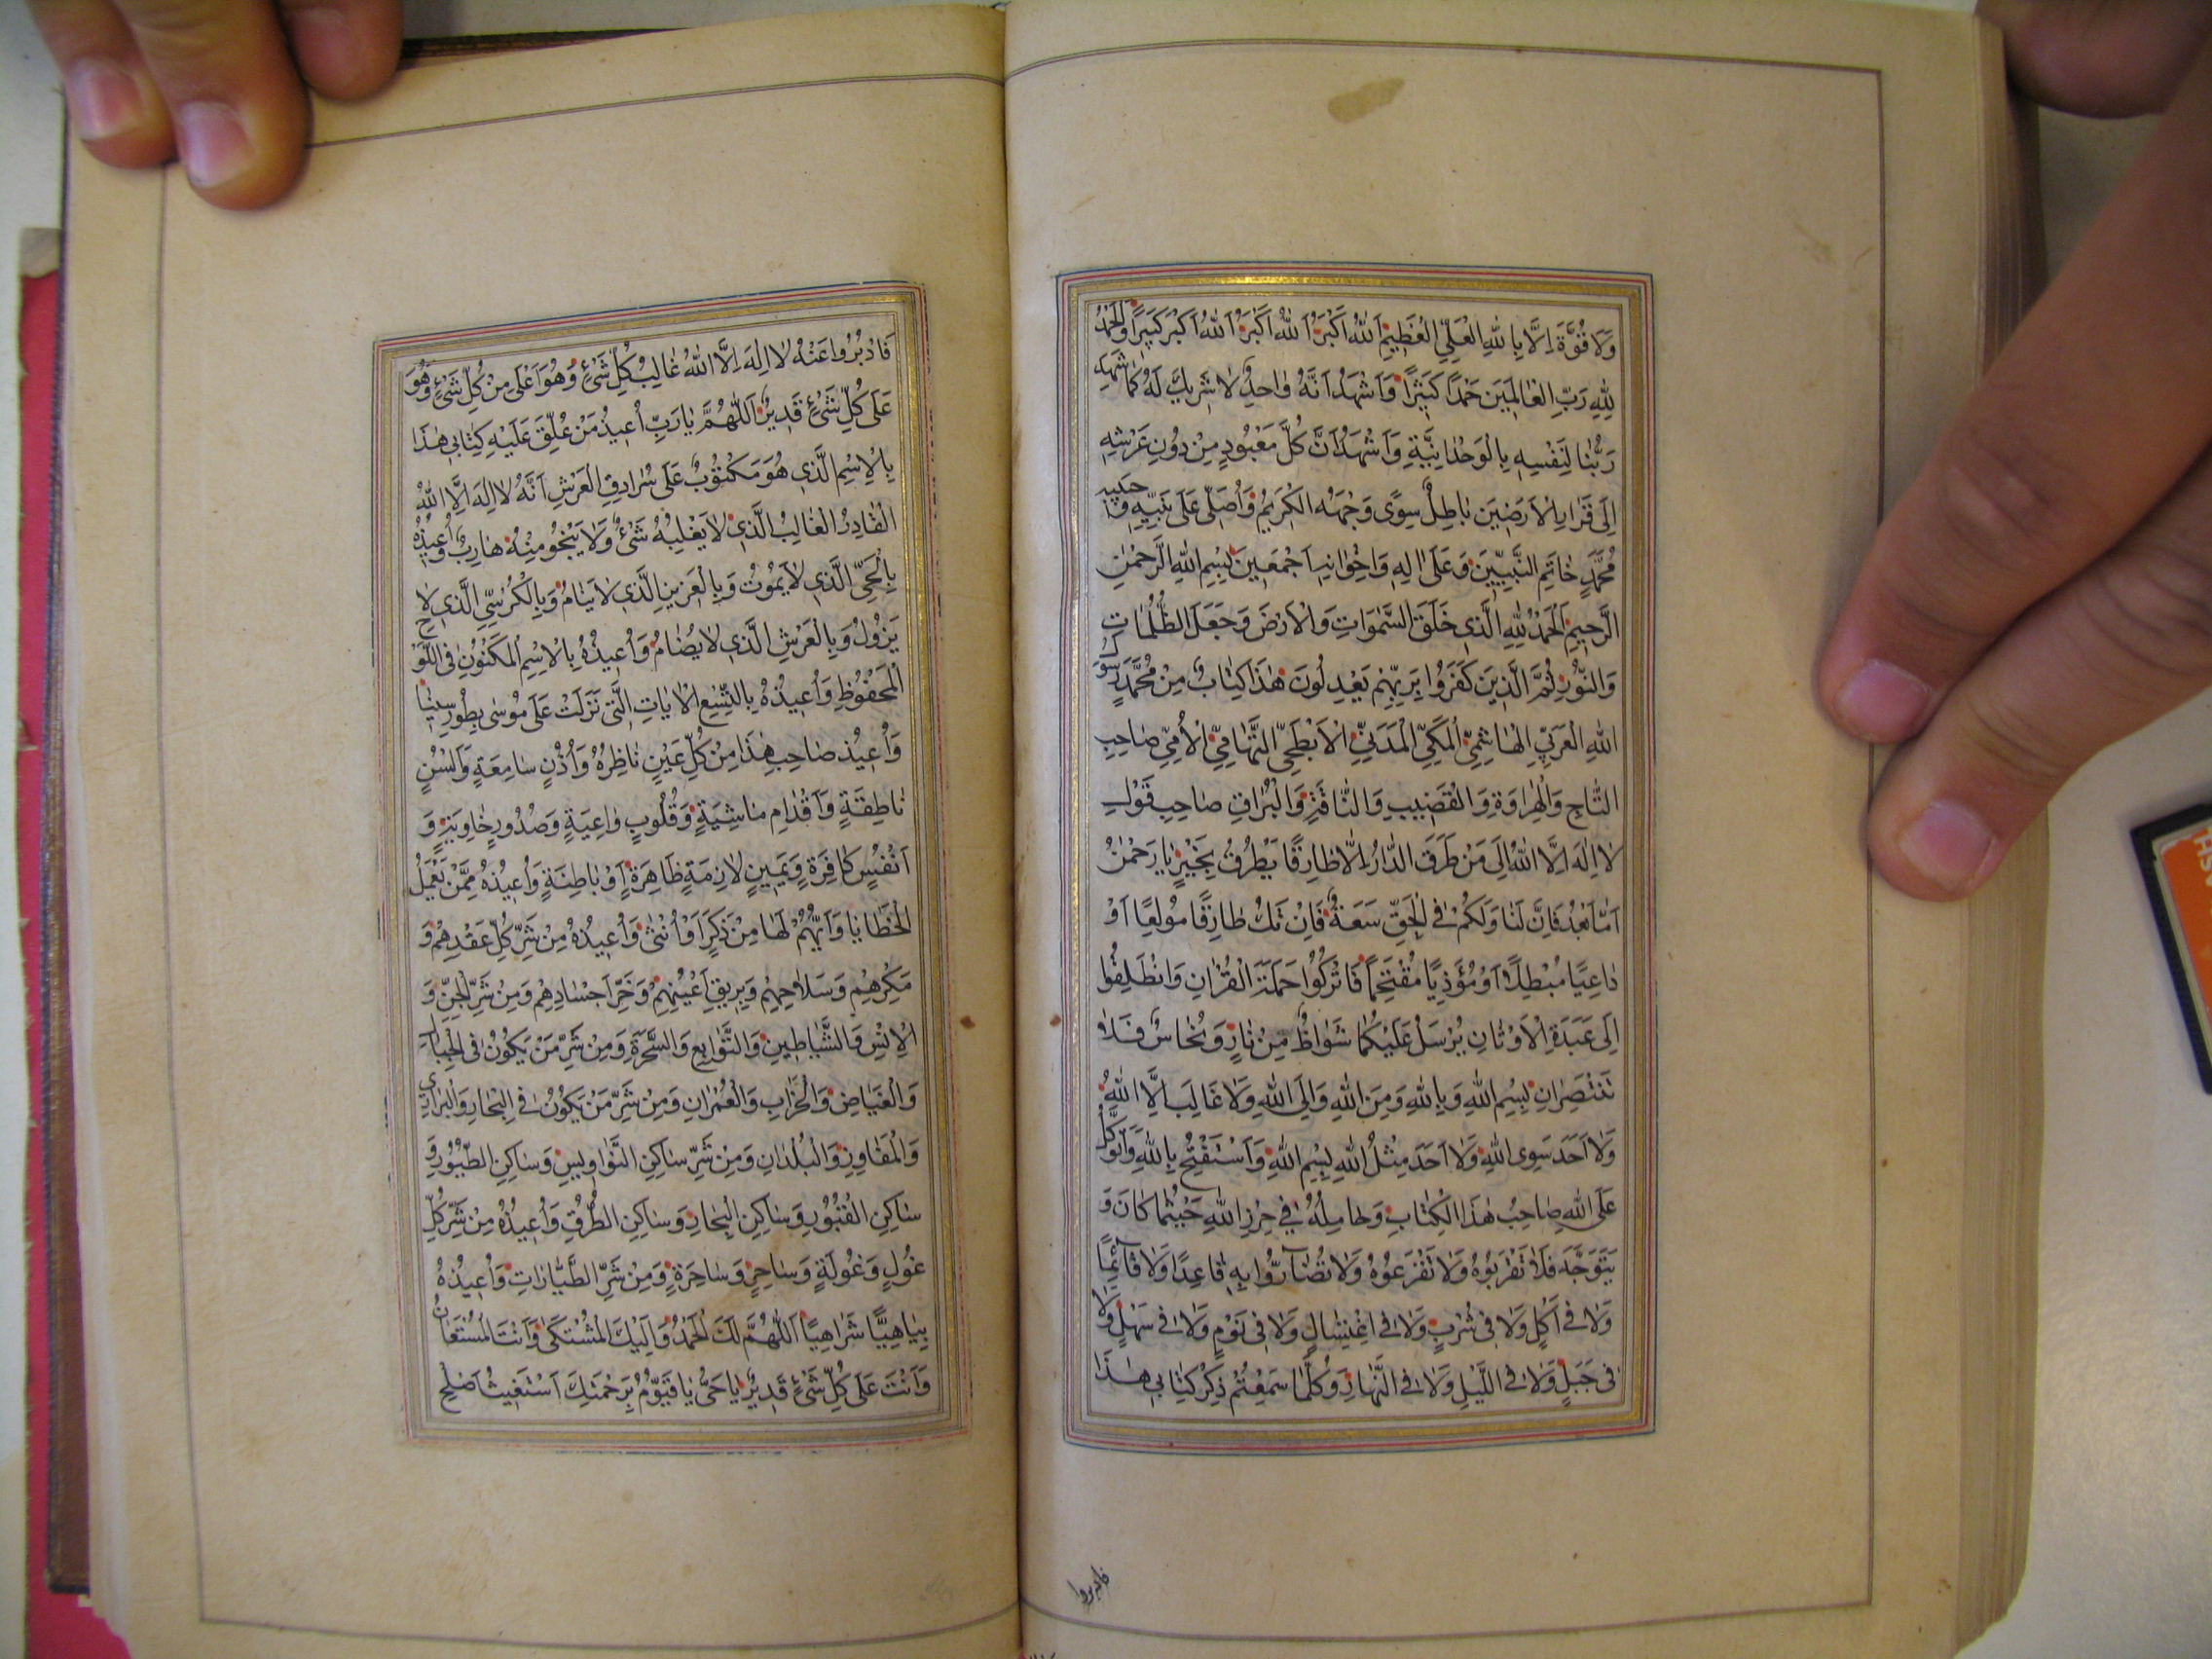 وَلَا قُوَّةَ اِلَّا بِاللهِ الْعَلِيِّ الْعَظِيمِ اَللهُ اَكْبَرُ اَللهُ اَكْبَرُ اَللهُ اَكْبَرُ كَبِيرًا وَالْحَمْدُ
لِلهِ رَبِّ الْعَالَمِينَ حَمْدًا كَثِيرًا وَاَشْهَدُ اَنَّهُ وَاحِدٌ لَا شَرِيكَ لَهُ كَمَا شَهِدَ
رَبُّنَا لِنَفْسِهِ بِالْوَحْدَانِيَّةِ وَاَشْهَدُ اَنَّ كُلَّ مَعْبُودٍ مِنْ دُونِ عَرْشِهِ
اِلَى قَرَارِ الْاَرَضِينَ بَاطِلٌ سِوَى وَجْهِهِ الْكَرِيمِ وَاُصَلِّي عَلَى نَبِيِّهِ وَحَبِيبِهِ
مُحَمَّدٍ خَاتَمِ النَّبِيِّينَ وَعَلَى اٰلِهِ وَاِخْوَانِهِ اَجْمَعِينَ بِسْمِ اللهِ الرَّحْمٰنِ
الرَّحِيمِ اَلْحَمْدُ لِلهِ الَّذِي خَلَقَ السَّمٰوَاتِ وَالْاَرْضَ وَجَعَلَ الظُّلُمَاتِ
وَالنُّورَ ثُمَّ الَّذِينَ كَفَرُوا بِرَبِّهِمْ يَعْدِلُونَ هٰذَا كِتَابٌ مِنْ مُحَمَّدٍ رَسُولِ
اللهِ الْعَرَبِيِّ الْهَاشِمِيِّ الْمَكِّيِّ الْمَدَنِيِّ الْاَبْطَحِيِّ التِّهَامِيِّ الْاُمِّيِّ صَاحِبِ
التَّاجِ وَالْهِرَاوَةِ وَالْقَضِيبِ وَالنَّاقَةِ وَالْبُرَاقِ صَاحِبِ قَوْلِ
لَا اِلٰهَ اِلَّا اللهُ اِلَى مَنْ طَرَقَ الدَّارَ اِلَّا طَارِقًا يَطْرُقُ بِخَيْرٍ يَا رَحْمٰنُ
اَمَّا بَعْدُ فَاِنَّ لَنَا وَلَكُمْ فِي الْحَقِّ سَعَةً فَاِنْ تَكُ طَارِقًا مُولِعًا اَوْ
دَاعِيًا مُبْطِلًا اَوْ مُؤْذِيًا مُقْتَحِمًا فَاتْرُكُوا حَمَلَةَ الْقُرْاٰنِ وَانْطَلِقُوا
اِلَى عَبَدَةِ الْاَوْثَانِ يُرْسَلُ عَلَيْكُمَا شُوَاظٌ مِنْ نَارٍ وَنُحَاسٌ فَلَا
تَنْتَصِرَانِ بِسْمِ اللهِ وَبِاللهِ وَمِنَ اللهِ وَاِلَى اللهِ وَلَا غَالِبَ اِلَّا اللهُ
وَلَا اَحَدَ سِوَى اللهِ وَلَا اَحَدَ مِثْلُ اللهِ بِسْمِ اللهِ وَاَسْتَفْتِحُ بِاللهِ وَاَتَوَكَّلُ
عَلَى اللهِ صَاحِبُ هٰذَا الْكِتَابِ وَحَامِلُهُ فِي حِرْزِ اللهِ حَيْثُمَا كَانَ وَ
يَتَوَجَّهُ فَلَا تَقْرَبُوهُ وَلَا تُفْزِعُوهُ وَلَا تُضَارُّوا بِهِ قَاعِدًا وَلَا قَائِمًا
وَلَا فِي اَكْلٍ وَلَا فِي شُرْبٍ وَلَا فِي اغْتِسَالٍ وَلَا فِي نَوْمٍ وَلَا فِي سَهْلٍ وَلَا
فِي جَبَلٍ وَلَا فِي اللَّيْلِ وَلَا فِي النَّهَارِ وَكُلَّمَا سَمِعْتُمْ ذِكْرَ كِتَابِي هٰذَا
فادبروا
فَادْبُرُوا عَنْهُ لَا اِلٰهَ اِلَّا اللهُ غَالِبُ كُلِّ شَيْءٍ وَهُوَ اَعْلَى مِنْ كُلِّ شَيْءٍ وَهُوَ
عَلَى كُلِّ شَيْءٍ قَدِيرٌ اَللّٰهُمَّ يَا رَبِّ اُعِيذُ مَنْ عُلِّقَ عَلَيْهِ كِتَابِي هٰذَا
بِالْاِسْمِ الَّذِي هُوَ مَكْتُوبٌ عَلَى سُرَادِقِ الْعَرْشِ اَنَّهُ لَا اِلٰهَ اِلَّا اللهُ
الْقَادِرُ الْغَالِبُ الَّذِي لَا يَغْلِبُهُ شَيْءٌ وَلَا يَنْجُو مِنْهُ هَارِبٌ وَاُعِيذُهُ
بِالْحَيِّ الَّذِي لَا يَمُوتُ وَبِالْعَزِيزِ الَّذِي لَا يَنَامُ وَبِالْكُرْسِيِّ الَّذِي لَا
يَزُولُ وَبِالْعَرْشِ الَّذِي لَا يُضَامُ وَاُعِيذُهُ بِالْاِسْمِ الْمَكْنُونِ فِي اللَّوْحِ
الْمَحْفُوظِ وَاُعِيذُهُ بِالتِّسْعِ الْاٰيَاتِ الَّتِي نَزَلَتْ عَلَى مُوسٰى بِطُورِ سِينَا
وَاُعِيذُ صَاحِبَ هٰذَا مِنْ كُلِّ عَيْنٍ نَاظِرَةٍ وَاُذُنٍ سَامِعَةٍ وَاَلْسُنٍ
نَاطِقَةٍ وَاَقْدَامٍ مَاشِيَةٍ وَقُلُوبٍ وَاعِيَةٍ وَصُدُورٍ خَاوِيَةٍ وَ
اَنْفُسٍ كَافِرَةٍ وَيَمِينٍ لَازِمَةٍ ظَاهِرَةٍ اَوْ بَاطِنَةٍ وَاُعِيذُهُ مِمَّنْ يَعْمَلُ
الْخَطَايَا وَيَهُمُّ لَهَا مِنْ ذَكَرٍ اَوْ اُنْثٰى وَاُعِيذُهُ مِنْ شَرِّ كُلِّ عَقْدِهِمْ وَ
مَكْرِهِمْ وَسَلَاحِهِمْ وَبَرِيقِ اَعْيُنِهِمْ وَحَرِّ اَجْسَادِهِمْ وَمِنْ شَرِّ الْجِنِّ وَ
الْاِنْسِ وَالشَّيَاطِينِ وَالتَّوَابِعِ وَالسَّحَرَةِ وَمِنْ شَرِّ مَنْ يَكُونُ فِي الْجِبَالِ
وَالْغِيَاضِ وَالْخَرَابِ وَالْعُمْرَانِ وَمِنْ شَرِّ مَنْ يَكُونُ فِي الْبِحَارِ وَالْبَرَارِي
وَالْمَفَاوِزِ وَالْبُلْدَانِ وَمِنْ شَرِّ سَاكِنِ النَّوَاوِيسِ وَسَاكِنِ الطُّيُورِ وَ
سَاكِنِ الْقُبُورِ وَسَاكِنِ الْبِحَارِ وَسَاكِنِ الطُّرُقِ وَاُعِيذُهُ مِنْ شَرِّ كُلِّ
غُولٍ وَغُولَةٍ وَسَاحِرٍ وَسَاحِرَةٍ وَمِنْ شَرِّ الطَّيَّارَاتِ وَاُعِيذُهُ
بِيَاهِيًّا شَرَاهِيًا اَللّٰهُمَّ لَكَ الْحَمْدُ وَاِلَيْكَ الْمُشْتَكٰى وَاَنْتَ الْمُسْتَعَانُ
وَاَنْتَ عَلَى كُلِّ شَيْءٍ قَدِيرٌ يَا حَيُّ يَا قَيُّومُ بِرَحْمَتِكَ اَسْتَغِيثُ اَصْلِحْ